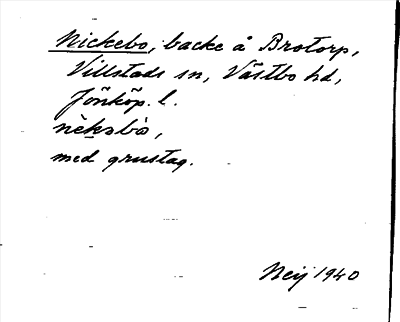 Nickebo, backe å Brotorp,
Villstads sn, Västbo hd,
Jönköp. l.
nèksbò,
med grustag.
Neij 1940